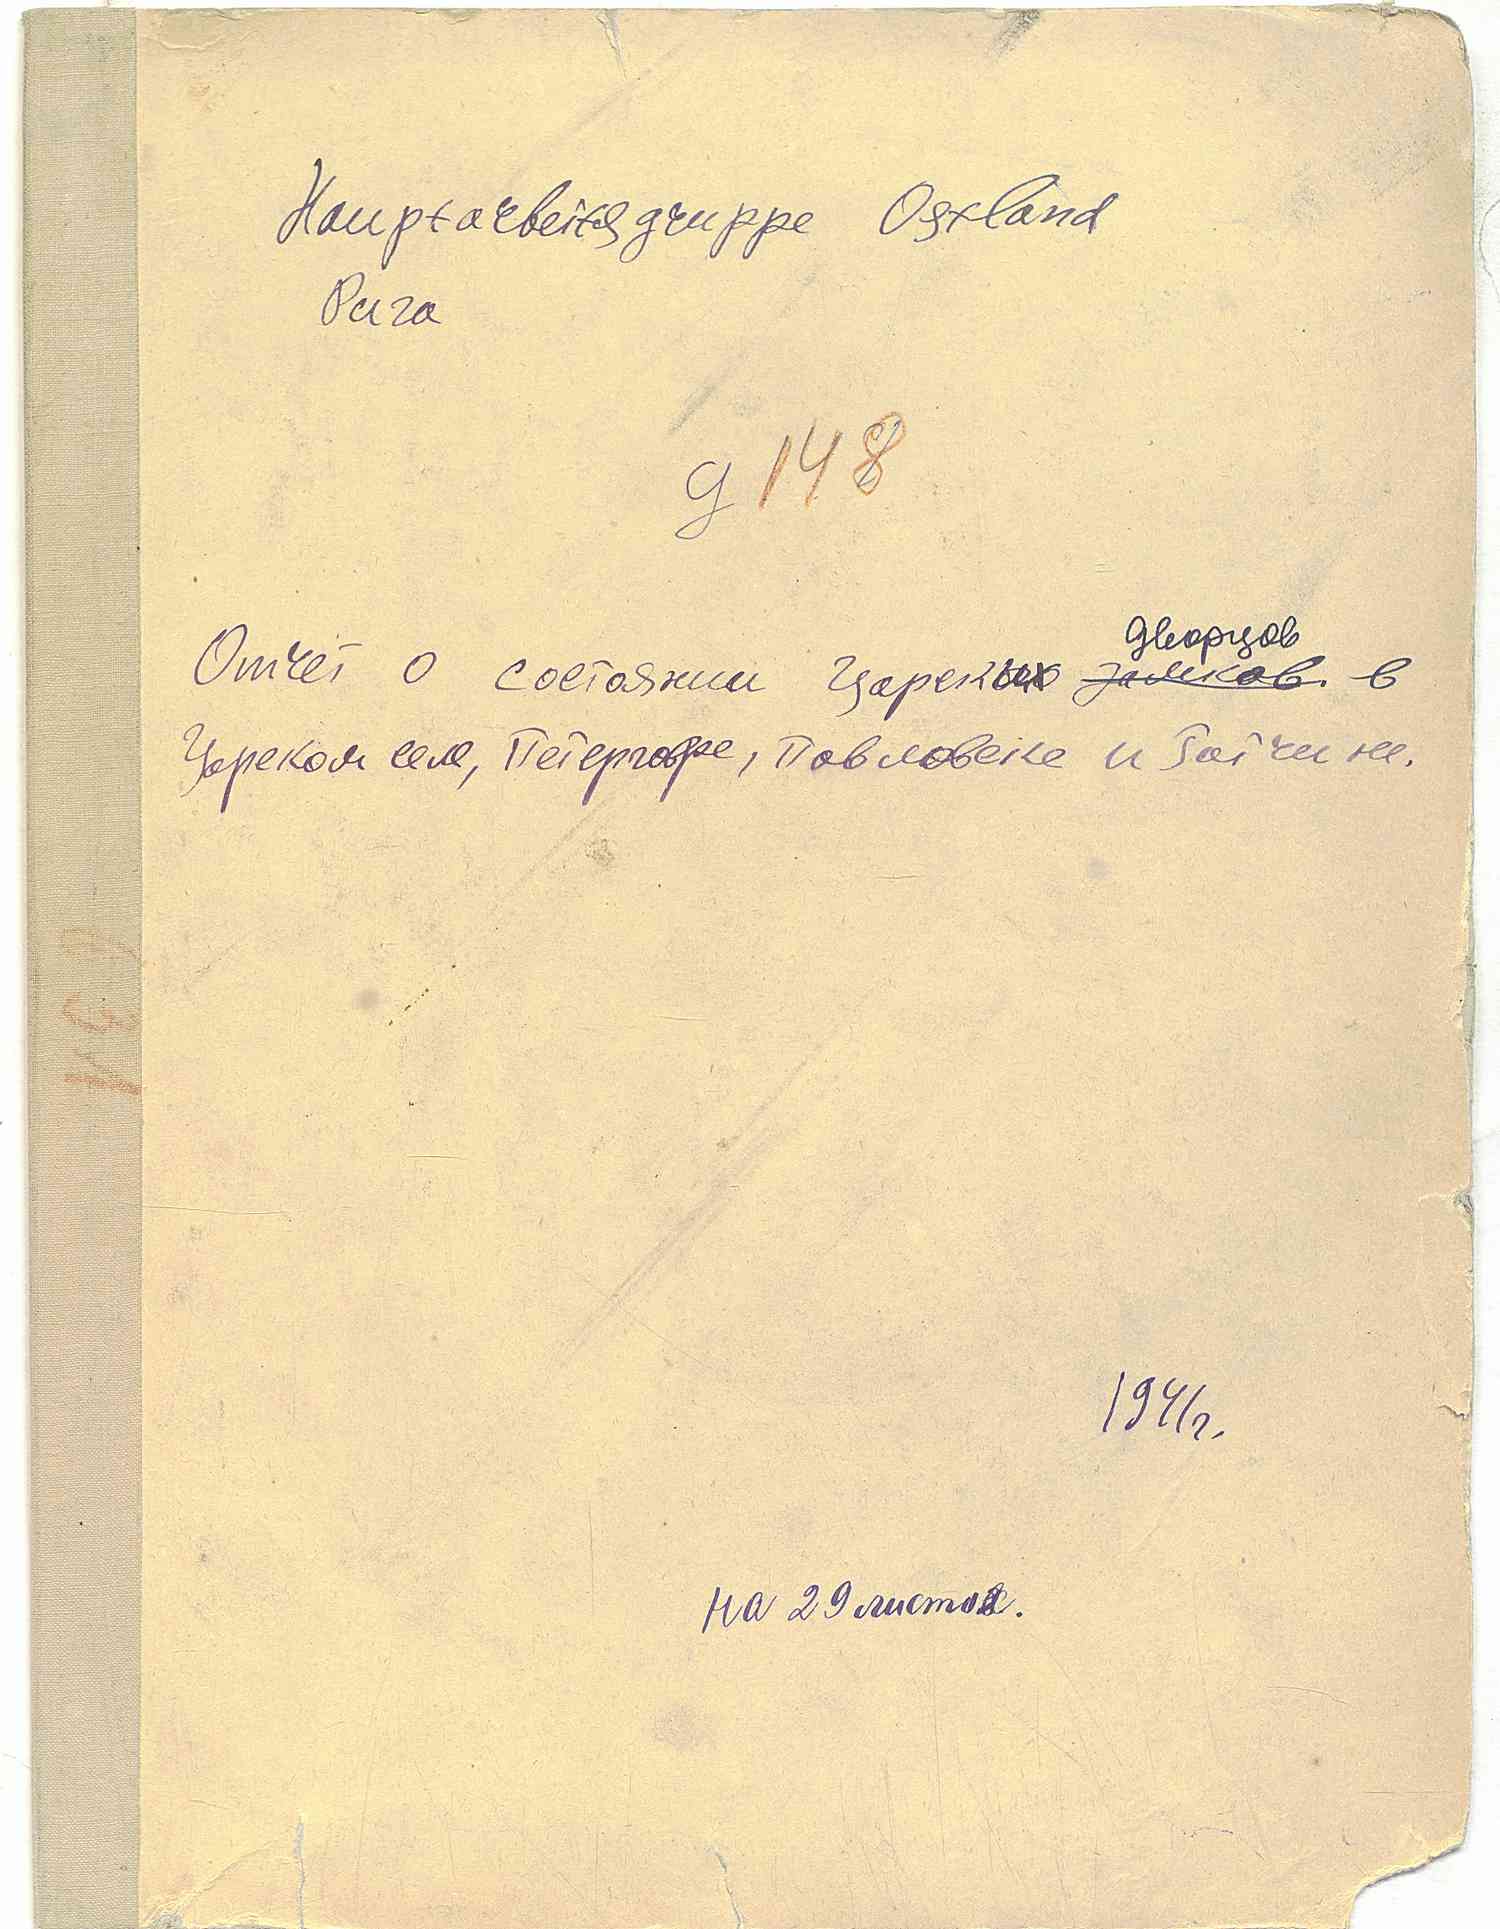 Hauptarbeitsgruppe Ostland
Рига
д 148
Отчет о состоянии царских замков дворцов в
Царском селе, Петергофе, Павловске и Гатчине.
1941г.
на 29 листах.